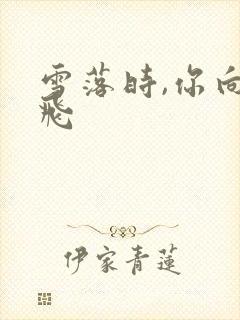 雪落時,你向
飛
伊家青蓮